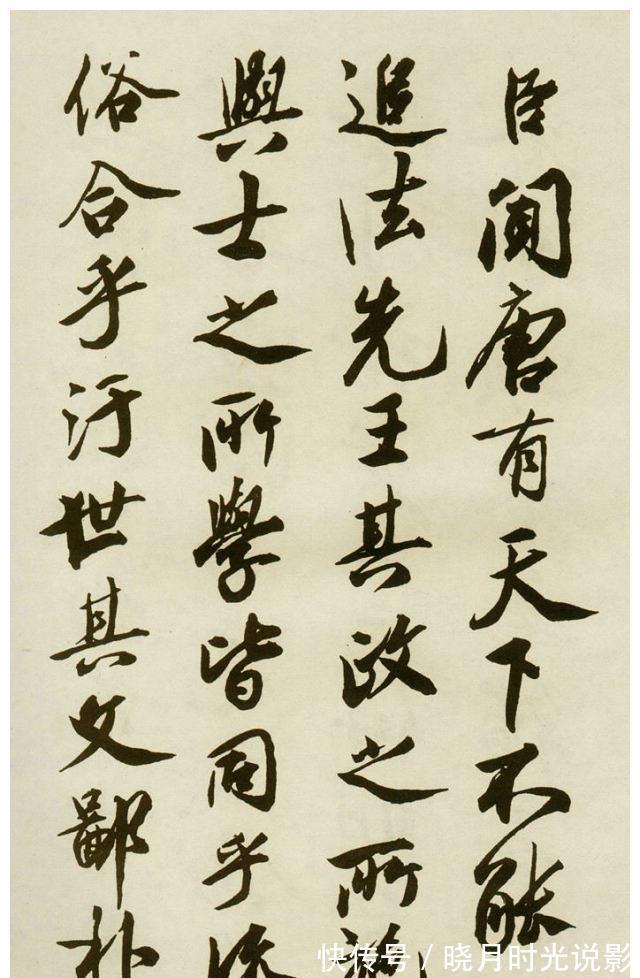 臣聞唐有天下不能
追法先王其政之所
與士之所學皆同乎流
俗合乎汙世其文鄙朴
快传号 / 晓月时光说影